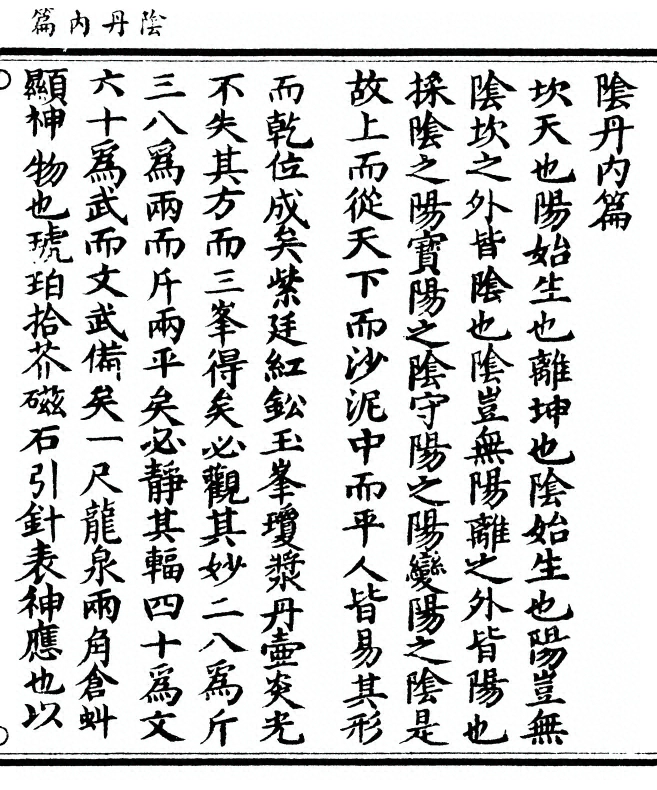 陰丹內篇
陰丹內篇
坎天也陽始生也離坤也陰始生也陽豈無
陰坎之外皆陰也陰豈無陽離之外皆陽也
採陰之陽寶陽之陰守陽之陽變陽之陰是
故上而從天下而沙泥中而平人皆易其形
而乾位成矣紫廷紅鈆玉峯瓊漿丹壷炎光
不失其方而三峯得矣必觀其妙二八爲斤
三八爲兩而斤兩平矣必靜其輻四十爲文
六十爲武而文武備矣一尺龍泉兩角倉蚪
顯神物也琥珀拾芥磁石引針表神應也以